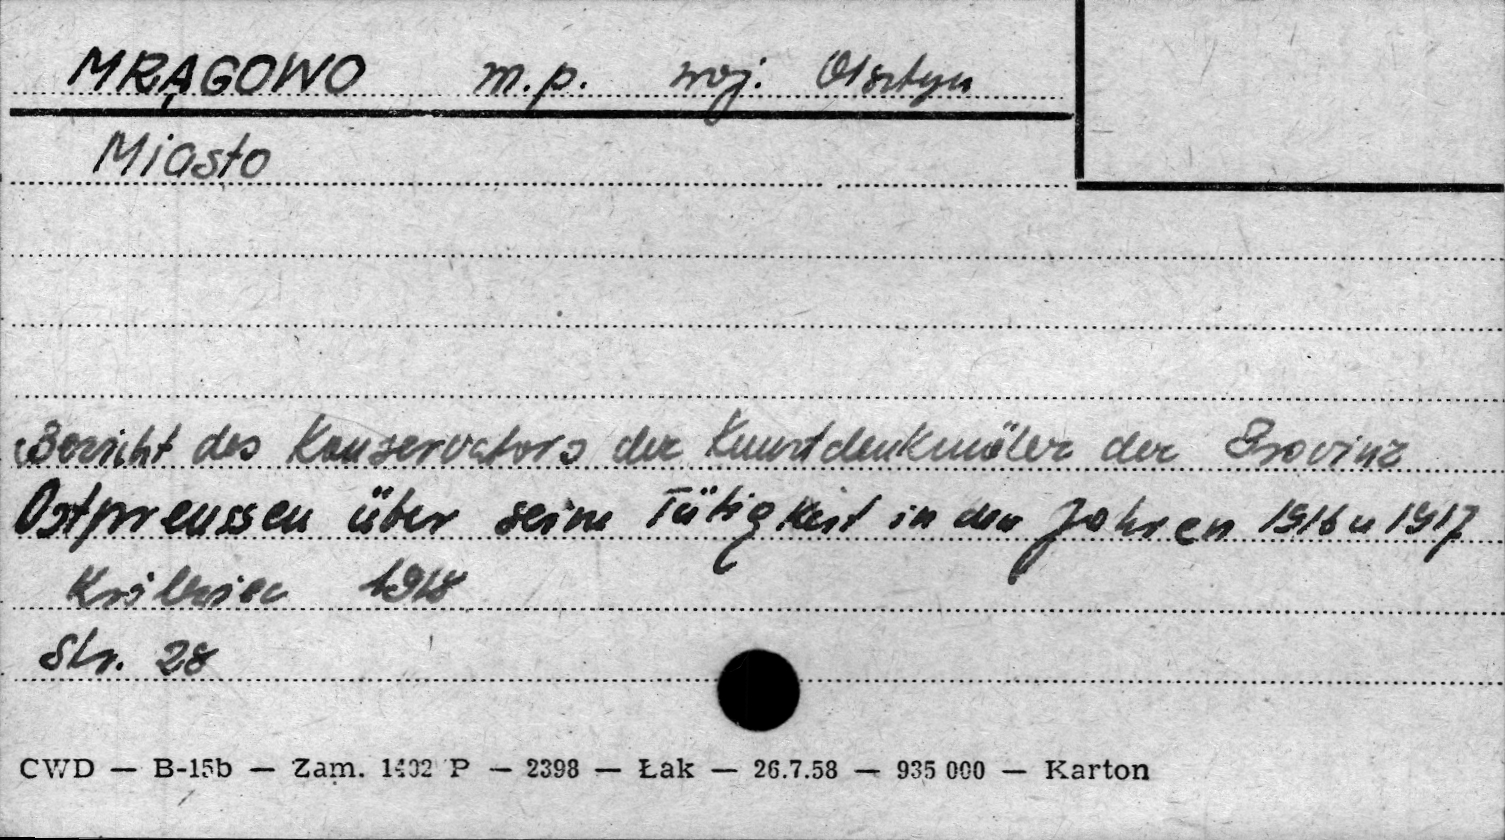 MRĄGOWO m.p. woj. Olsztyn
Miasto
Bericht des Konservators der Kunstdenkmäler der Provinz
Ostpreussen über seine Tätigkeit in den Jahren 1916 u 1917
Królewiec 1918
Str. 28
CWD — B-15b — Zam. 1402 P — 2398 — Łak — 26.7.58 — 935 000 — Karton